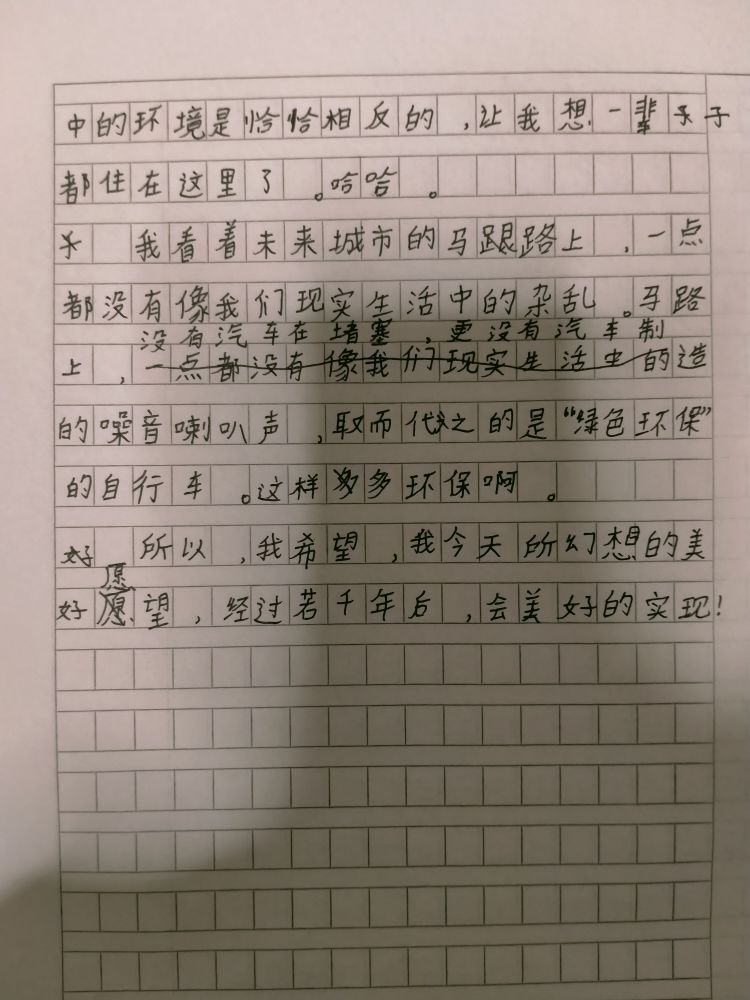 中的环境是恰恰相反的,让我想一辈子
都住在这里了。哈哈。
我看着未来城市的马路上,一点
都没有像我们现实生活中的杂乱。马路
没有汽车在堵塞,更没有汽车制
上,一点都没有像我们现实生活中的造
的噪音喇叭声,取而代之的是“绿色环保”
的自行车。这样多环保啊。
好 所以,我希望,我今天所幻想的美
愿
好愿望,经过若千年后,会美好的实现!